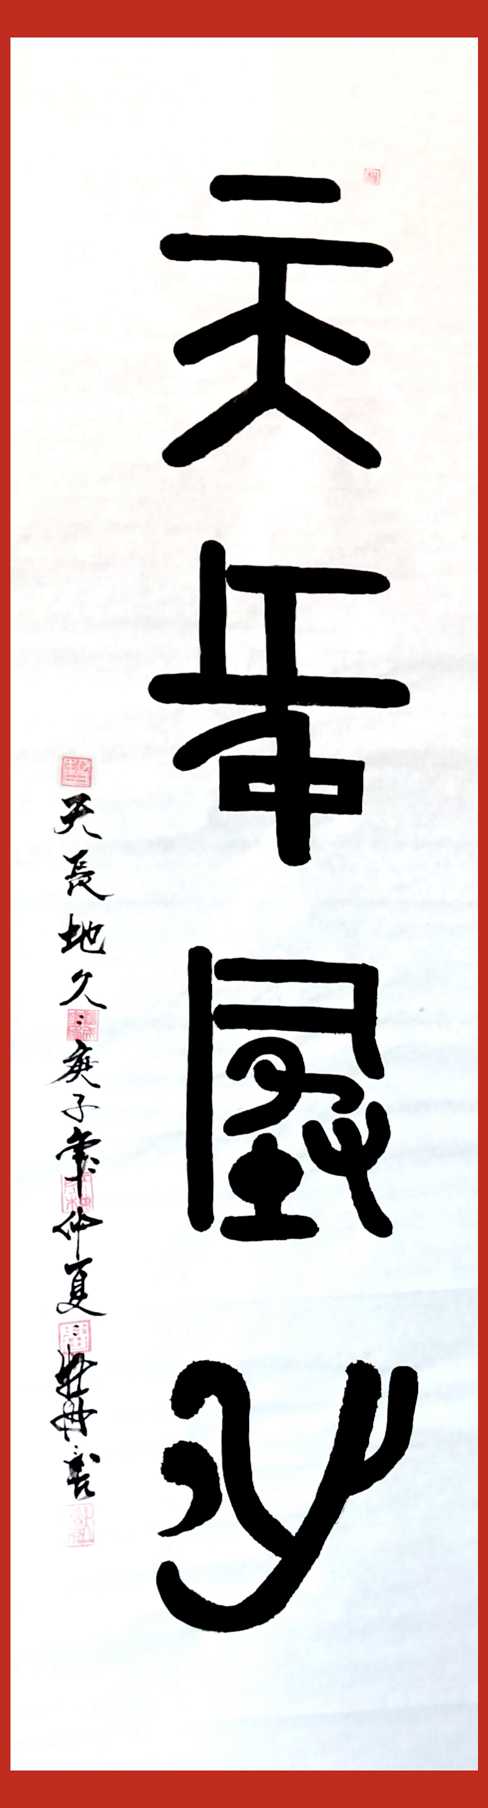 天長地久
天長地久庚子年仲夏